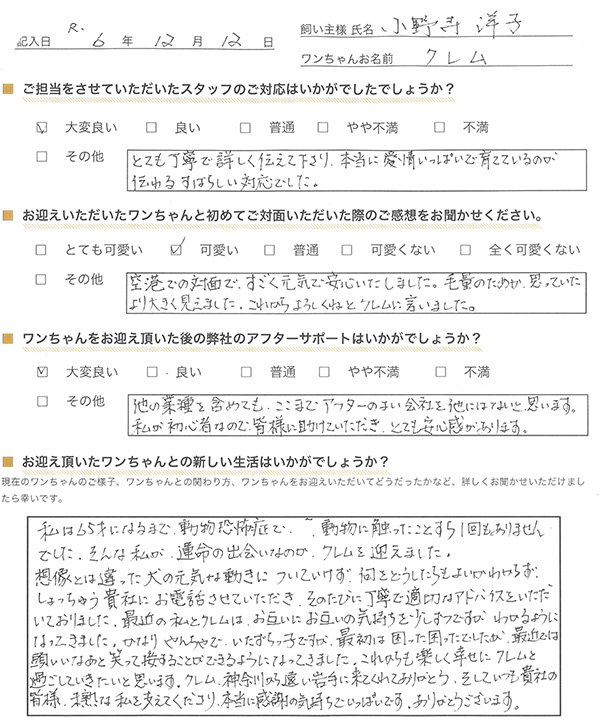 記入日 R. 6 年 12 月 12 日
飼い主様 氏名 小野寺 洋子
ワンちゃんお名前 クレム
■ ご担当をさせていただいたスタッフのご対応はいかがでしたでしょうか？
☑ 大変良い □ 良い □ 普通 □ やや不満 □ 不満
□ その他 とても丁寧で詳しく伝えて下さり、本当に愛情いっぱいで育てているのが
伝わるすばらしい対応でした。
■ お迎えいただいたワンちゃんと初めてご対面いただいた際のご感想をお聞かせください。
□ とても可愛い ☑ 可愛い □ 普通 □ 可愛くない □ 全く可愛くない
□ その他 空港での対面で、すごく元気で安心いたしました。毛量のためか、思っていた
より大きく見えました。これからよろしくねとクレムに言いました。
■ ワンちゃんをお迎え頂いた後の弊社のアフターサポートはいかがでしょうか？
☑ 大変良い □ 良い □ 普通 □ やや不満 □ 不満
□ その他 他の業種を含めても、ここまでアフターのよい会社は他にはないと思います。
私が初心者なので皆様に助けていただき、とても安心感があります。
■ お迎え頂いたワンちゃんとの新しい生活はいかがでしょうか？
現在のワンちゃんのご様子、ワンちゃんとの関わり方、ワンちゃんをお迎えいただいてどうだったかなど、詳しくお聞かせいただけまし
たら幸いです。
私は65才になるまで、動物恐怖症で、動物に触ったことすら1回もありません
でした。そんな私が、運命の出会いなのか、クレムを迎えました。
想像とは違った犬の元気な動きについていけず、何をどうしたらよいかわからず、
しょっちゅう貴社にお電話させていただき、そのたびに丁寧で適切なアドバイスをいただ
いておりました。最近の私とクレムは、お互いにお互いの気持ちを少しずつですが、わかるように
なってきました。かなりやんちゃで、いたずらっ子ですが、最初は困った困ったでしたが、最近では
頭いいなあと笑って接することができるようになってきました。これからも楽しく幸せにクレムと
過ごしていきたいと思います。クレム、神奈川から遠い岩手に来てくれてありがとう。そしていつも貴社の
皆様、無知な私を支えてくださり、本当に感謝の気持ちでいっぱいです。ありがとうございます。